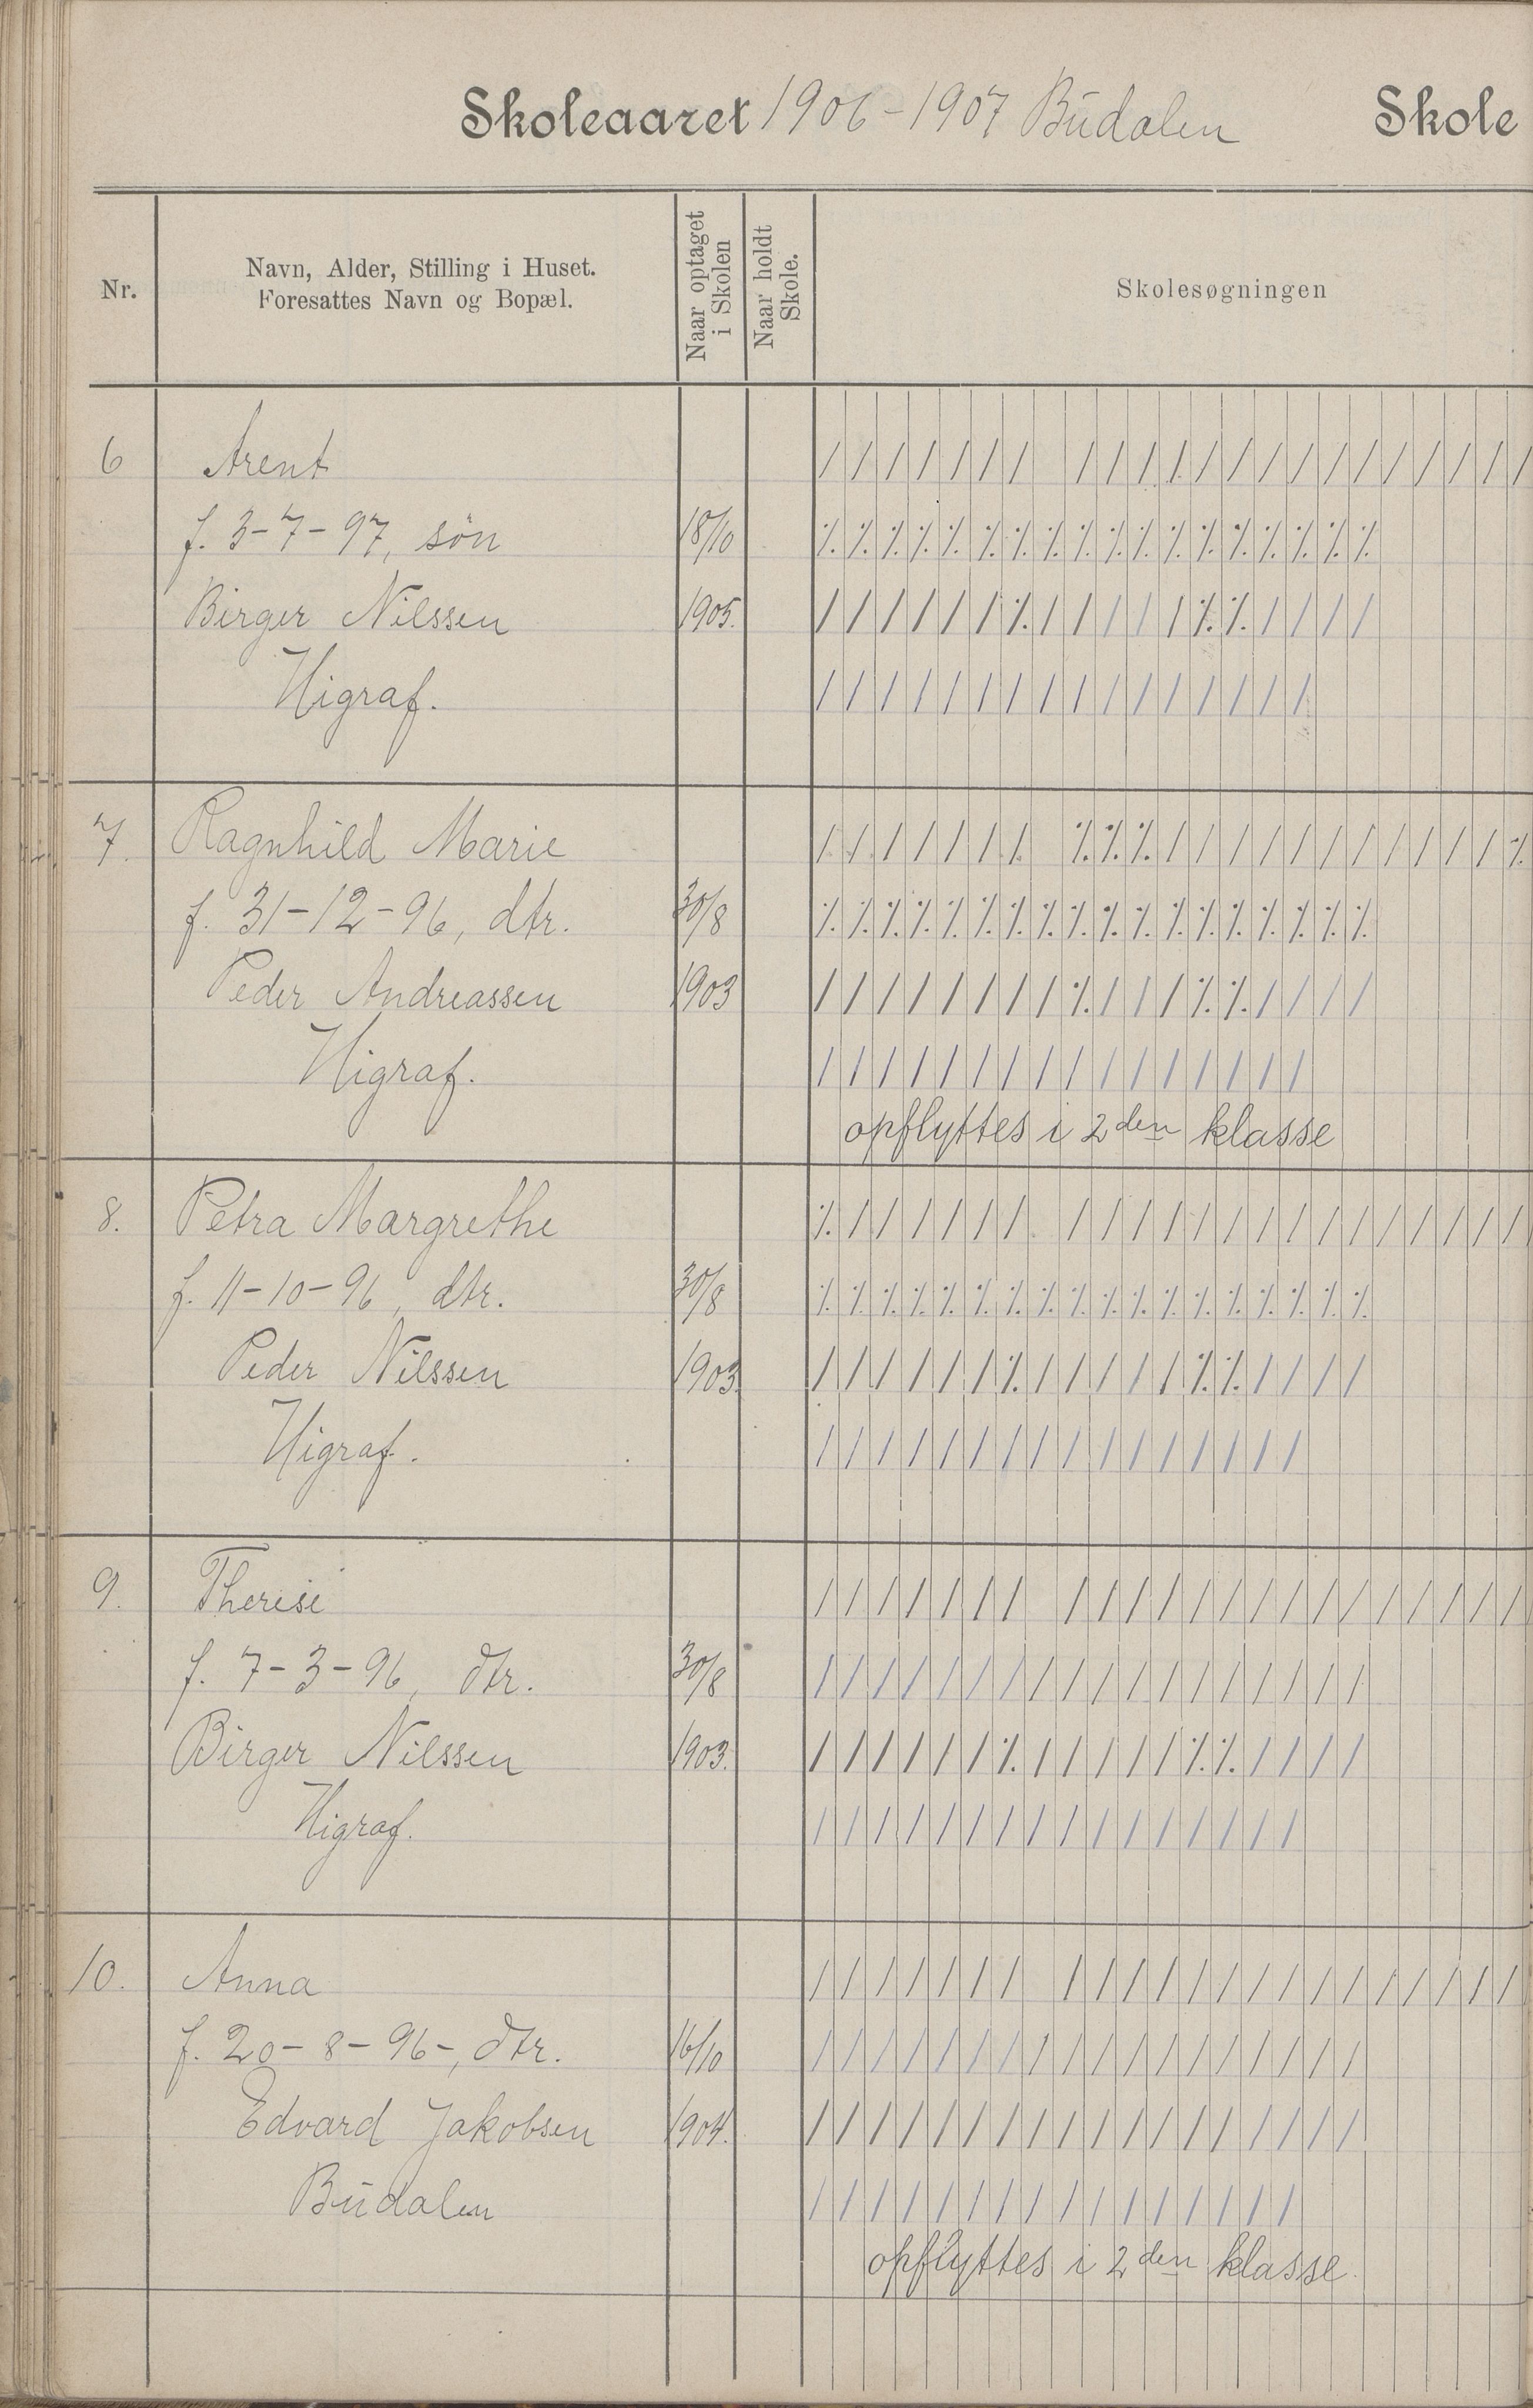 Skoleaaret 1906-1907 Budalen Skole
Nr.
Navn, Alder, Stilling i Huset.
Foresattes Navn og Bopæl.
Naar optaget
i Skolen
Naar holdt
Skole.
Skolesøgningen
6 Arent
f. 3-7-97, søn 18/10
Birger Nilssen 1905.
Higraf.
7. Ragnhild Marie
f. 31-12-96, dtr. 30/8
Peder Andreassen 1903
Higraf.
opflyttes i 2den klasse
8. Petra Margrethe
f. 11-10-96, dtr. 30/8
Peder Nilssen 1903.
Higraf.
9. Therese
f. 7-3-96, dtr. 30/8
Birger Nilssen 1903.
Higraf.
10. Anna
f. 20-8-96-, dtr. 16/10
Edvard Jakobsen 1904.
Budalen
opflyttes i 2den klasse.